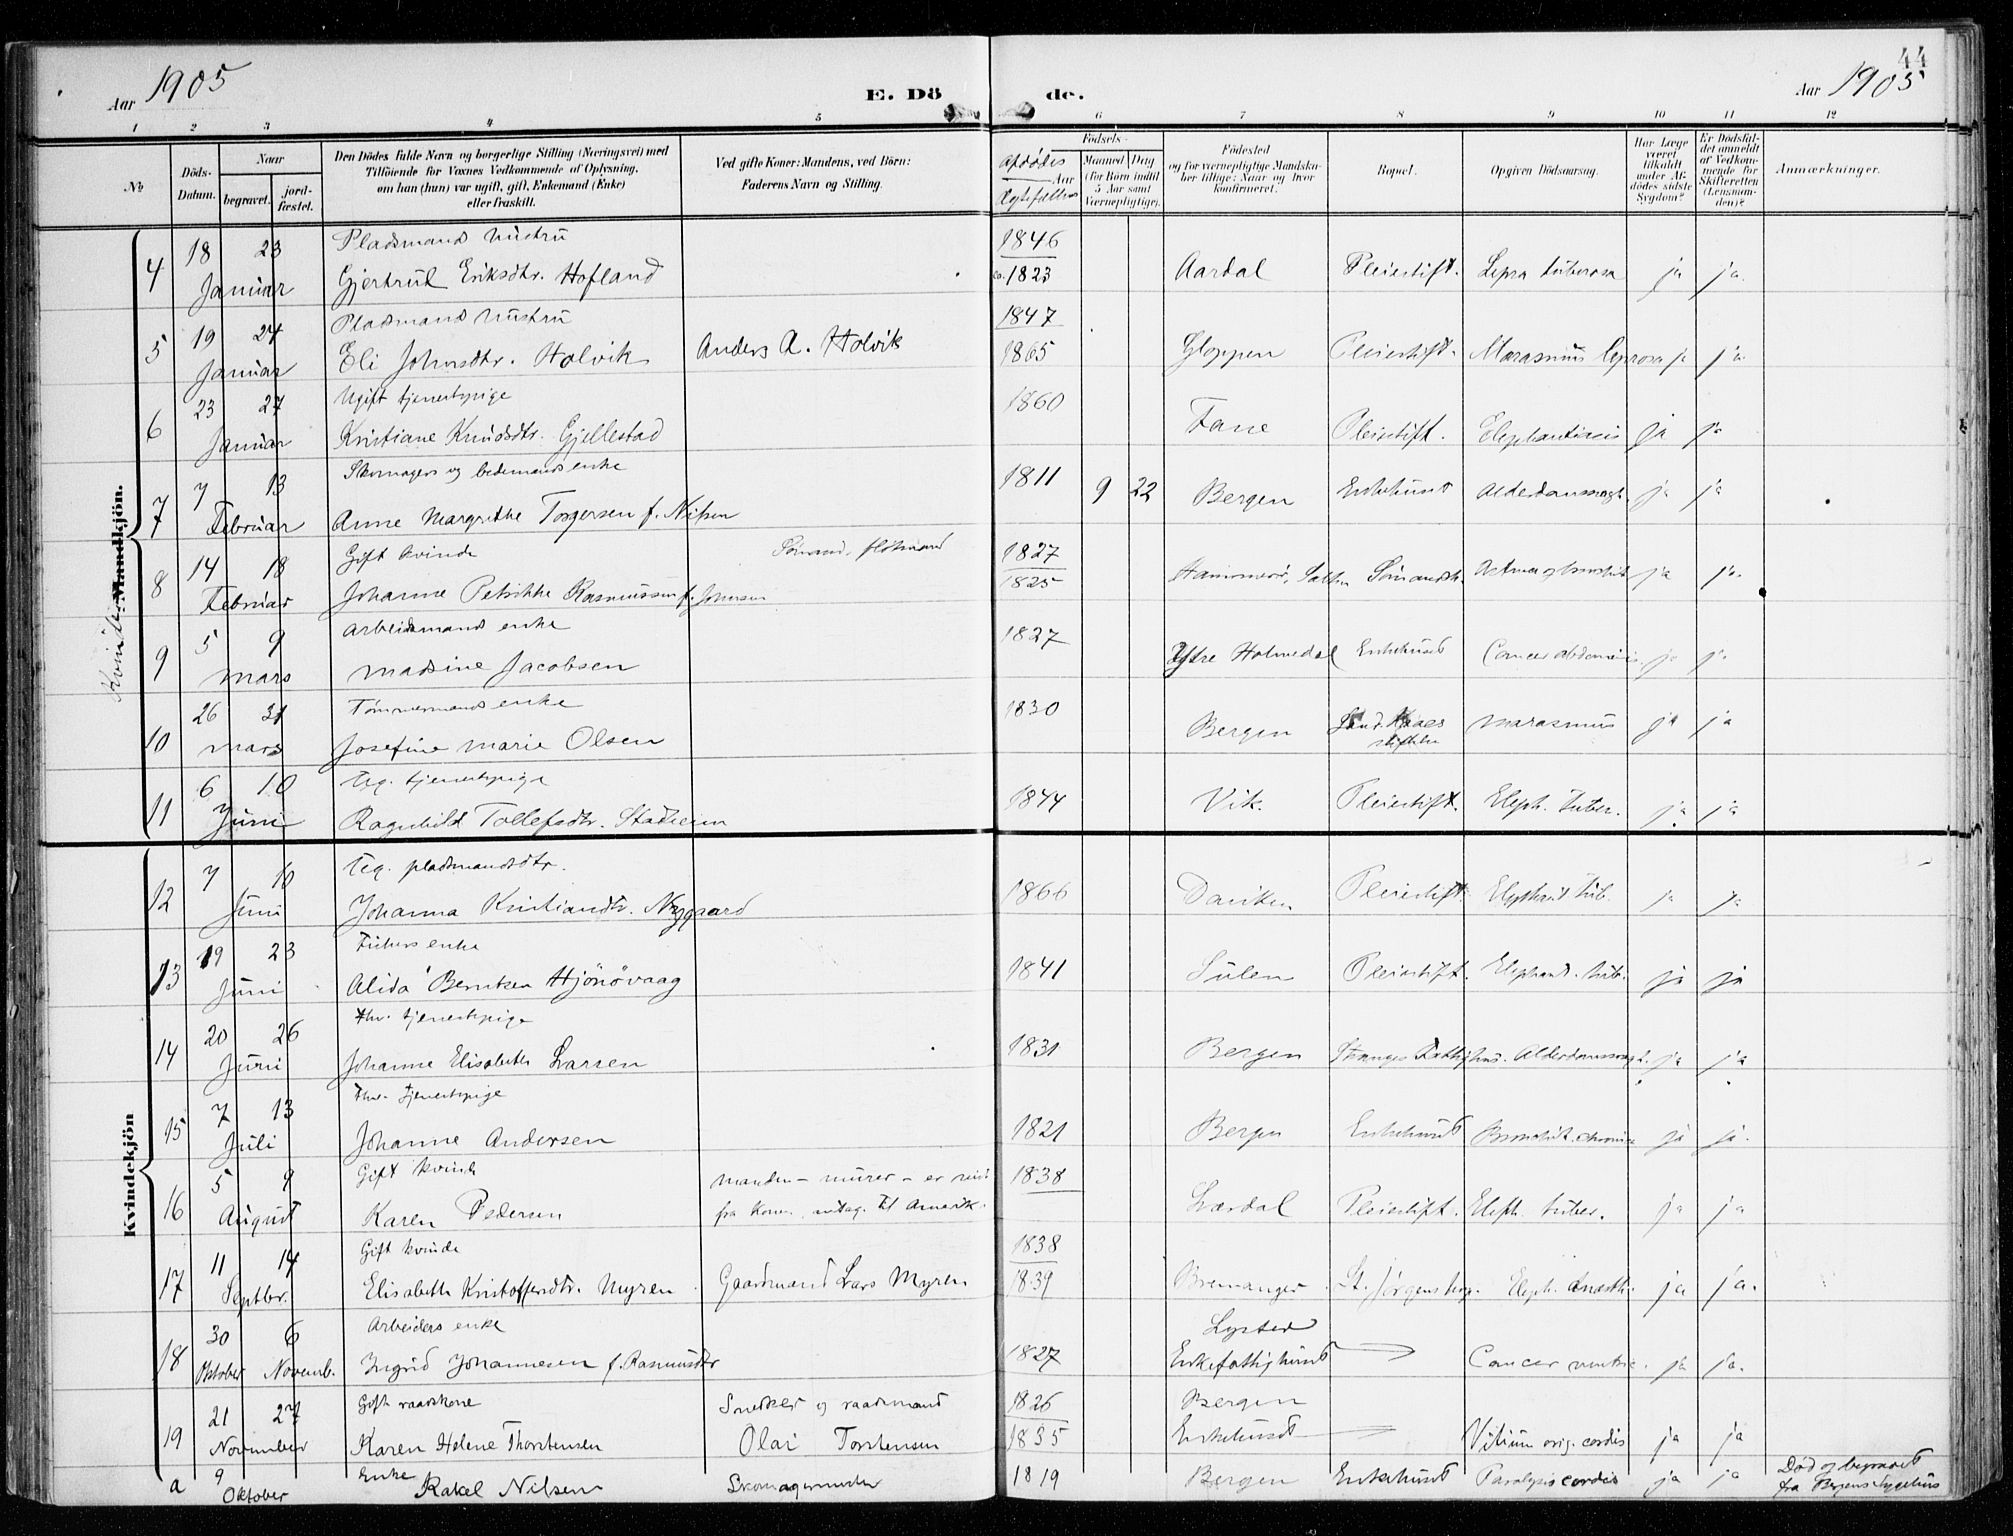 44
Aar 1905 E. Dö de. Aar 1905
1 2 3 4 5 6 7 8 9 10 11 12
No
Döds-Datum.
Naar
begravet.
jord-fæstet.
Den Dödes fulde Navn og borgerlige Stilling (Næringsvei) med
Tilföiende for Voxnes Vedkommende af Oplysning,
om han (hun) var ugift, gift, Enkemand (Enke)
eller fraskilt.
Ved gifte Koner: Mandens, ved Börn:
Faderens Navn og Stilling.
Afdødes
Ægtefælles
Födsels-
Aar
Maaned (for Börn indtil 5 Aar samt Værnepligtige).
Dag
Födested
og for værnepligtige Mandska-
ber tillige: Naar og hvor
konfirmeret.
Bopæl.
Opgiven Dödsaarsag.
Har Læge været tilkaldt under Af-dödes sidste Sygdom?
Er Dödsfal-det anmeldt af Vedkom-mende for Skifteretten (Lensman-den)?
Anmærkninger.
Mandkjön.
Kvindekjön
Pladsmands hustru 1846
4 18 23 Januar Gjertrud Eriksdtr. Hofland ca. 1823 Aardal Pleiestift. Lepra tuberosa ja ja
Pladsmands hustru 1847
5 19 24 Januar Eli Johnsdtr. Holvik Anders A. Holvik 1865 Gloppen Pleiestift. Marasmus leprosa ja ja
Ugift tjenestepige
6 23 27 Januar Kristiane Knudsdtr. Gjellestad 1860 Fane Pleiestift. Elephantiasis ja ja
Skomagers og bedemands enke
7 7 13 Februar Anne Margrethe Torgersen f. Nilsen 1811 9 22 Bergen Enkehuset Alderdomssvagh. ja ja
Gift kvinde 1827
8 14 18 Februar Johanne Petrikke Rasmussen f. Johnsen 1825 ja ja
Arbeidsmands enke
9 5 9 Mars Madsine Jacobsen 1827 Ytre Holmedal Enkehuset Cancer abdominis ja ja
Tømmermands enke
10 26 31 Mars Josefine Marie Olsen 1830 Bergen marasmus ja ja
Ug. tjenestepige
11 6 10 Juni Ragnhild Tollefsdtr. Stadheim 1844 Vik Pleiestift. Eleph. tuber. ja ja
Ug. pladsmandsdtr.
12 7 10 Juni Johanna Kristiandtr. Nygaard 1866 Daviken Pleiestift. Elephant tub. ja ja
Fiskers enke
13 19 23 Juni Alida Berntsen Hjönövaag 1841 Sulen Pleiestift. Elephant. tub. ja ja
Fhv. tjenestepige
14 20 26 Juni Johanne Elisabeth Larsen 1831 Bergen Stranges Fattighus. Alderdomssvagh. ja ja
Fhv. tjenestepige
15 7 13 Juli Johanne Andersen 1821 Bergen Enkehuset Bronchit. chronica ja ja.
Gift kvinde manden – murer – er reist 1838
16 5 9 August Karen Pedersen fra konen til Amerik. Lærdal Pleiestift. Eleph. tuber. ja ja
Gift kvinde 1838
17 11 14 Septbr. Elisabeth Kristoffersdtr. Myren Gaardmand Lars Myren 1839 Bremanger St. Jørgens hosp. Eleph. anæsth. ja ja.
Arbeiders enke Lyster
18 30 Oktober 6 Novemb. Ingrid Johannesen f. Rasmusdtr 1827 Enkefattighuset Cancer ventric. ja ja.
Gift Snedker og 1826 Bergen
19 21 27 November Karen Helene Thorstensen Olai Torstensen 1835 Enkehuset Vitium orig. cordis ja ja
a 9 Oktober Enke Rakel Nilsen Skomagermester 1819 Bergen Enkehuset Paralysis cordis ja ja Død og begravet
fra Bergens Sygehus